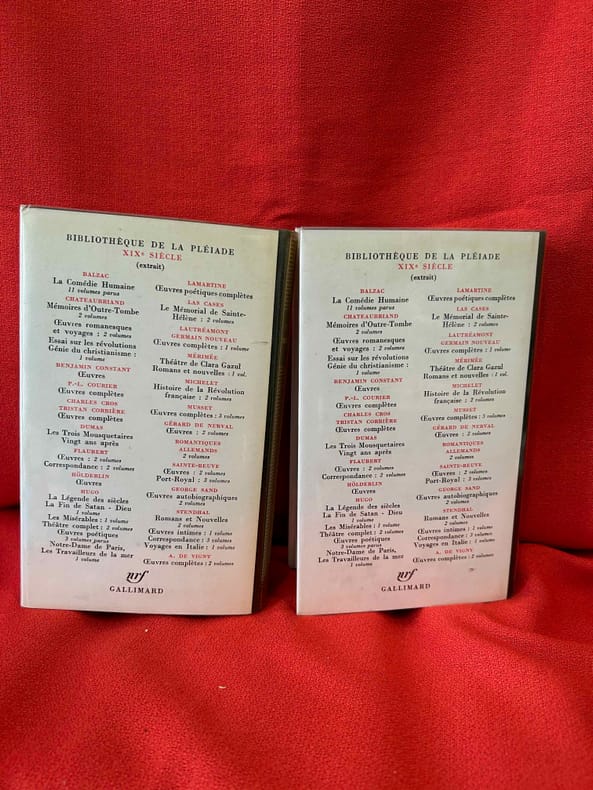 BIBLIOTHÈQUE DE LA PLÉIADE
XIXe SIÈCLE
(extrait)
BALZAC
La Comédie Humaine
11 volumes parus
CHATEAUBRIAND
Mémoires d'Outre-Tombe
2 volumes
Œuvres romanesques
et voyages : 2 volumes
Essai sur les révolutions
Génie du christianisme :
1 volume
BENJAMIN CONSTANT
Œuvres
P.-L. COURIER
Œuvres complètes
CHARLES CROS
TRISTAN CORBIÈRE
Œuvres complètes
DUMAS
Les Trois Mousquetaires
Vingt ans après
FLAUBERT
Œuvres : 2 volumes
Correspondance : 2 volumes
HÖLDERLIN
Œuvres
HUGO
La Légende des siècles
La Fin de Satan - Dieu
1 volume
Les Misérables : 1 volume
Théâtre complet : 2 volumes
Œuvres poétiques
3 volumes parus
Notre-Dame de Paris,
Les Travailleurs de la mer
1 volume
LAMARTINE
Œuvres poétiques complètes
LAS CASES
Le Mémorial de Sainte-
Hélène : 2 volumes
LAUTRÉAMONT
GERMAIN NOUVEAU
Œuvres complètes : 1 volume
MÉRIMÉE
Théâtre de Clara Gazul
Romans et nouvelles : 1 vol.
MICHELET
Histoire de la Révolution
française : 2 volumes
MUSSET
Œuvres complètes : 3 volumes
GÉRARD DE NERVAL
Œuvres : 2 volumes
ROMANTIQUES
ALLEMANDS
2 volumes
SAINTE-BEUVE
Œuvres : 2 volumes
Port-Royal : 3 volumes
GEORGE SAND
Œuvres autobiographiques
2 volumes
STENDHAL
Romans et Nouvelles
2 volumes
Œuvres intimes : 1 volume
Correspondance : 3 volumes
Voyages en Italie : 1 volume
A. DE VIGNY
Œuvres complètes : 2 volumes
nrf
GALLIMARD
BIBLIOTHÈQUE DE LA PLÉIADE
XIXe SIÈCLE
(extrait)
BALZAC
La Comédie Humaine
11 volumes parus
CHATEAUBRIAND
Mémoires d'Outre-Tombe
2 volumes
Œuvres romanesques
et voyages : 2 volumes
Essai sur les révolutions
Génie du christianisme :
1 volume
BENJAMIN CONSTANT
Œuvres
P.-L. COURIER
Œuvres complètes
CHARLES CROS
TRISTAN CORBIÈRE
Œuvres complètes
DUMAS
Les Trois Mousquetaires
Vingt ans après
FLAUBERT
Œuvres : 2 volumes
Correspondance : 2 volumes
HÖLDERLIN
Œuvres
HUGO
La Légende des siècles
La Fin de Satan - Dieu
1 volume
Les Misérables : 1 volume
Théâtre complet : 2 volumes
Œuvres poétiques
3 volumes parus
Notre-Dame de Paris,
Les Travailleurs de la mer
1 volume
LAMARTINE
Œuvres poétiques complètes
LAS CASES
Le Mémorial de Sainte-
Hélène : 2 volumes
LAUTRÉAMONT
GERMAIN NOUVEAU
Œuvres complètes : 1 volume
MÉRIMÉE
Théâtre de Clara Gazul
Romans et nouvelles : 1 vol.
MICHELET
Histoire de la Révolution
française : 2 volumes
MUSSET
Œuvres complètes : 3 volumes
GÉRARD DE NERVAL
Œuvres : 2 volumes
ROMANTIQUES
ALLEMANDS
2 volumes
SAINTE-BEUVE
Œuvres : 2 volumes
Port-Royal : 3 volumes
GEORGE SAND
Œuvres autobiographiques
2 volumes
STENDHAL
Romans et Nouvelles
2 volumes
Œuvres intimes : 1 volume
Correspondance : 3 volumes
Voyages en Italie : 1 volume
A. DE VIGNY
Œuvres complètes : 2 volumes
nrf
GALLIMARD